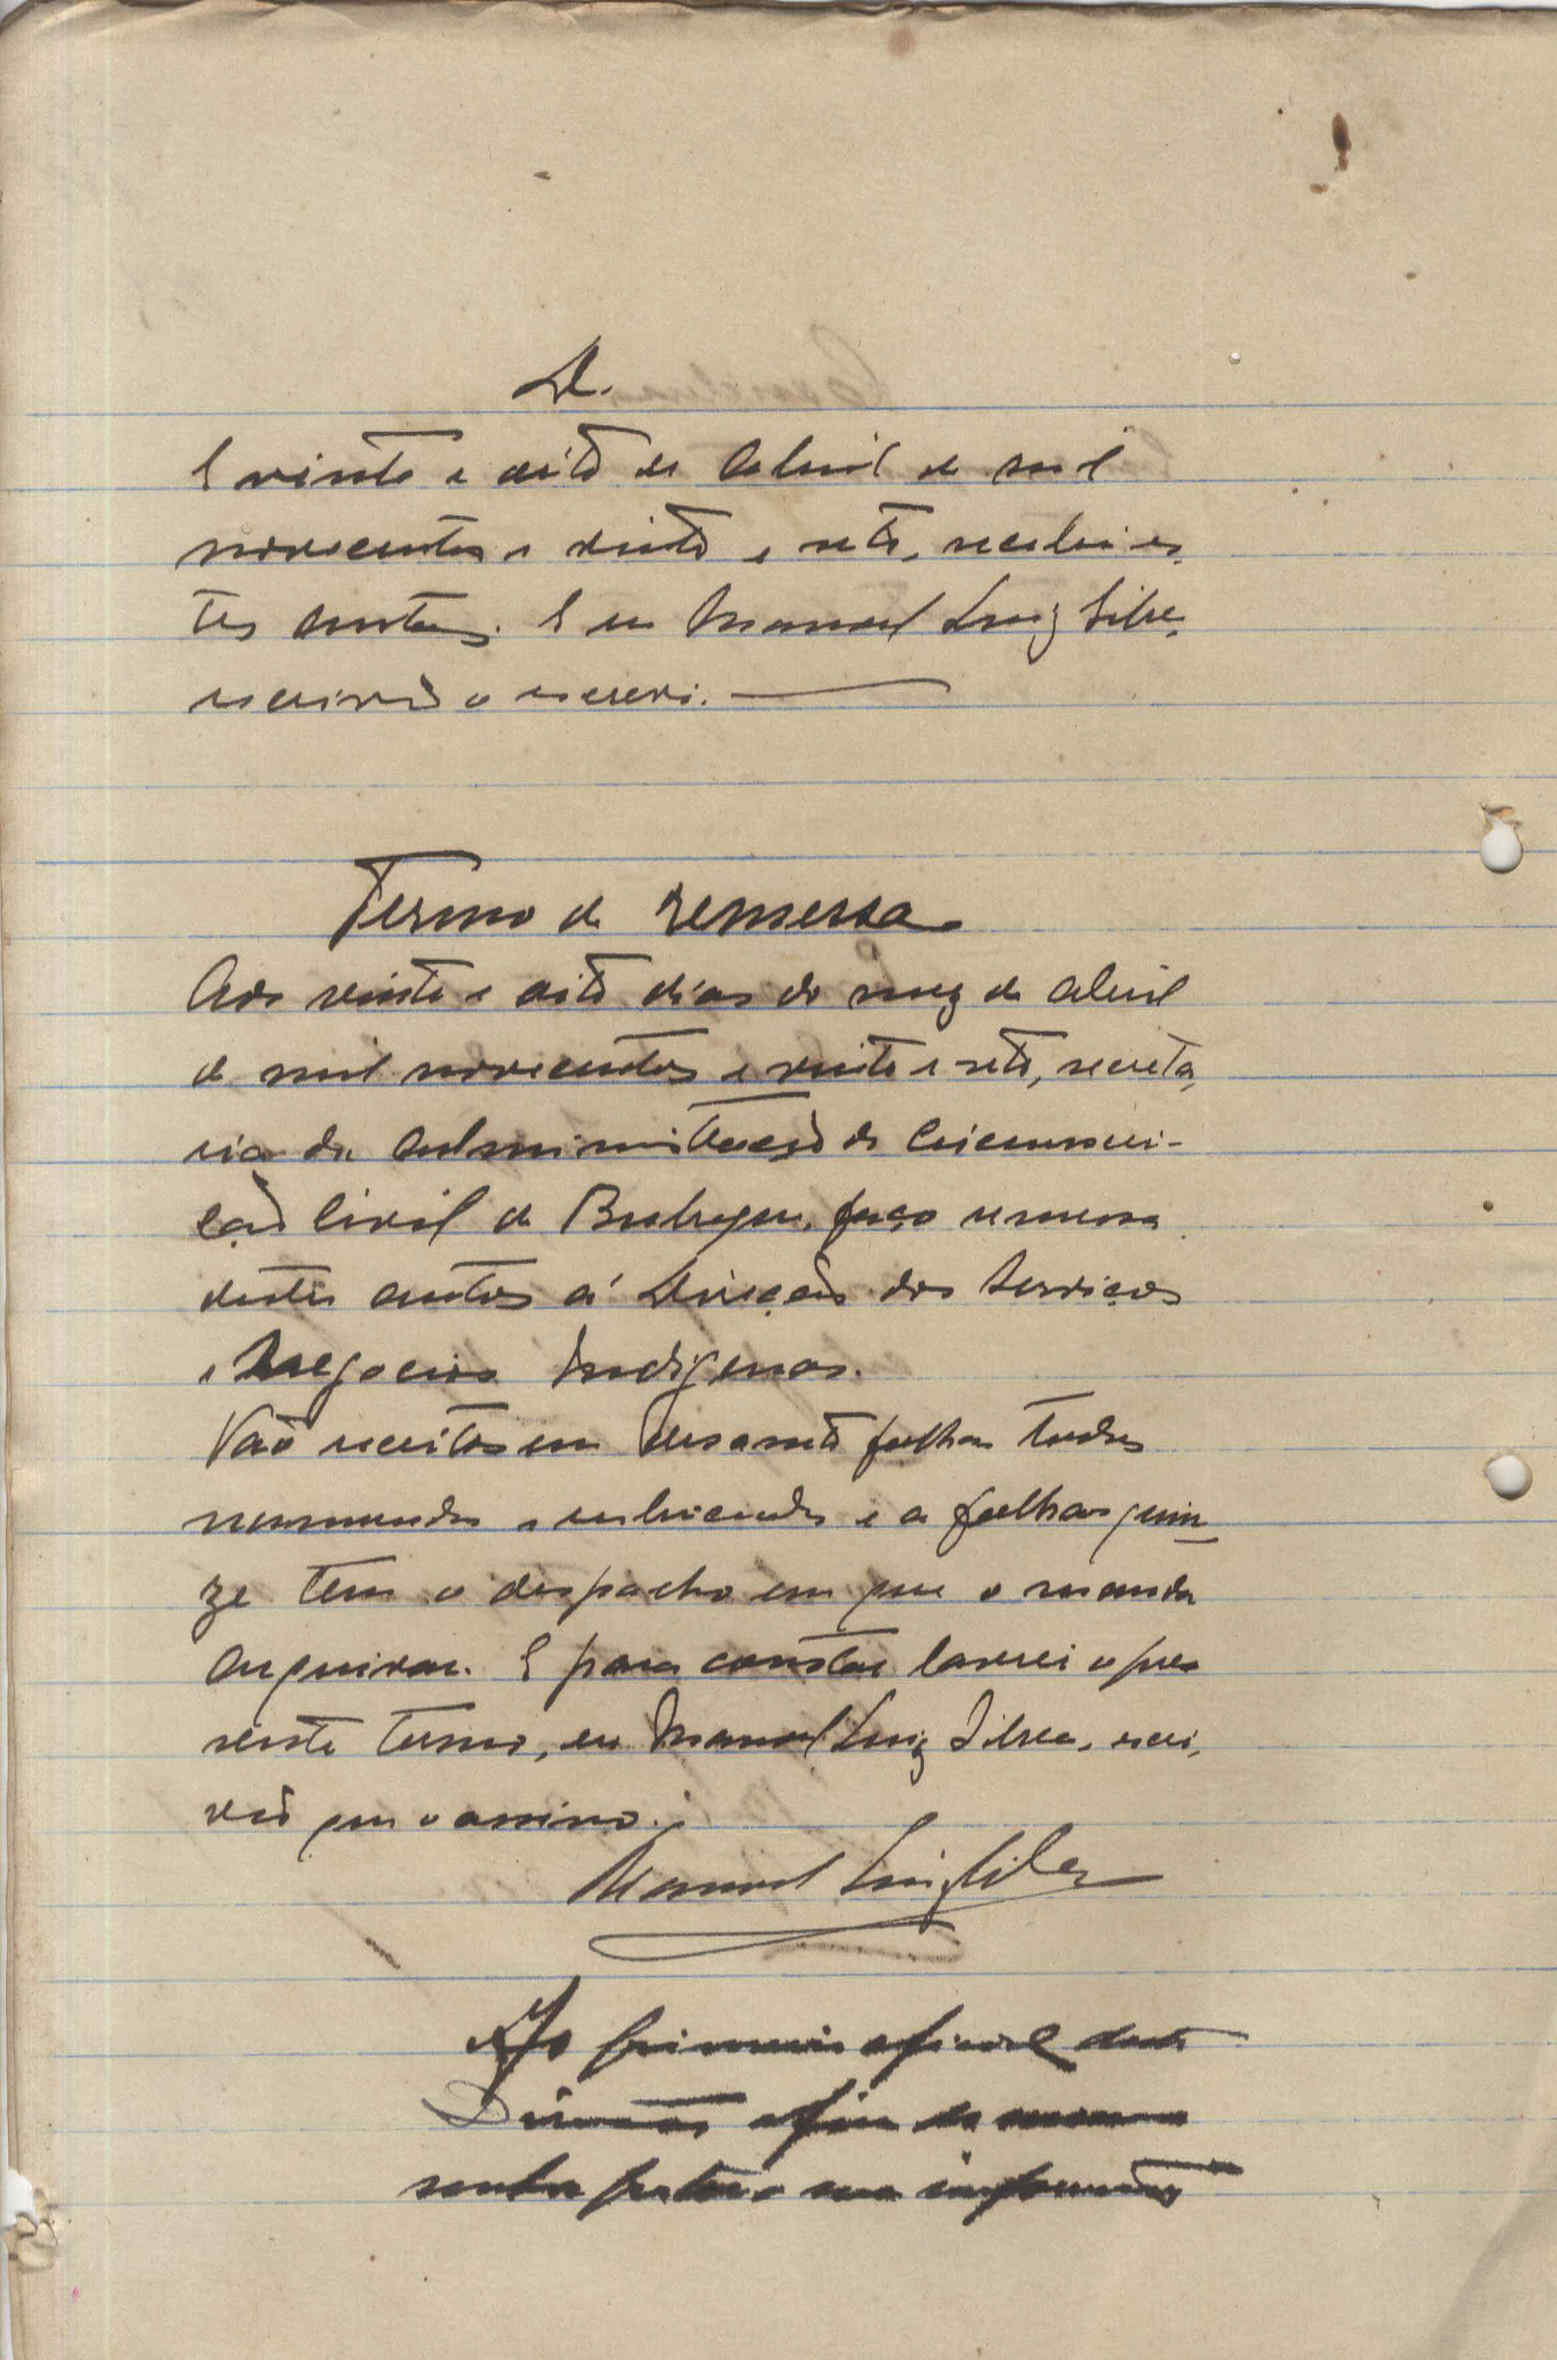 D.
E vinte e oito de Abril de mil
novecentos e vinte e sete, recebi es-
tes autos. E eu Manuel Luiz Silva,
escrivão o escrevi.
Termo de remessa
Aos vinte e oito dias do mez de Abril
de mil novecentos e vinte e sete, secreta-
ria da Administração da Circunscri-
ção Civil de faço remessa
destes autos á Direcção dos Serviços
e Negocios Indigenas.
Vão escritos em folhas todas
numeradas e rubricadas e a folhas quin-
ze tem o despacho em que o manda
arquivar. E para constar lavrei o pre-
sente termo, eu Manuel Luiz Silva, escri-
vão que o assino.
Manuel Luiz Silva
Ao primeiro oficial desta
Direcção afim de
informação